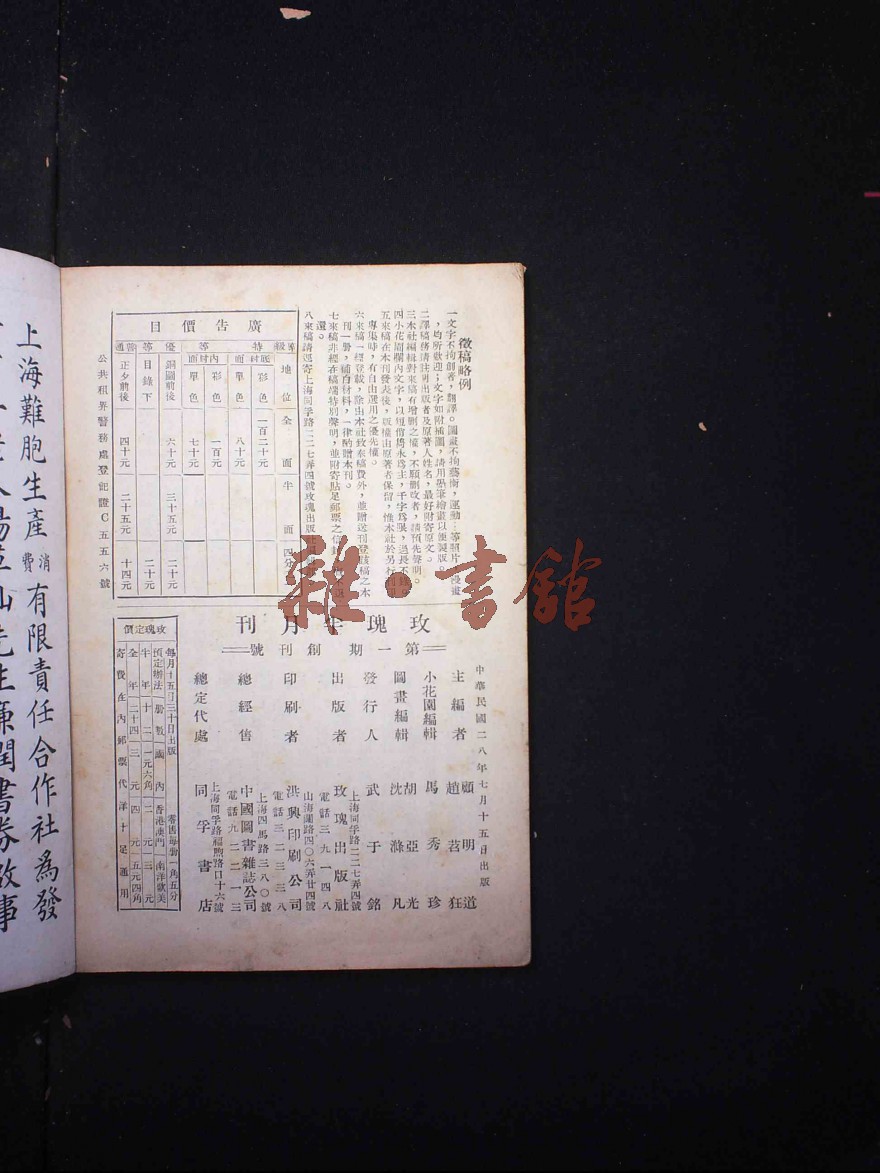 徵稿略例
一文字不拘創著，翻譯。圖畫不拘藝術，運動…等照片
，均所歡迎；文字如附插圖，請用墨筆繪畫以便製版。
二譯稿務請註明出版者及原著人姓名，最好附寄原文。
三本社編輯對來稿有增删之權，不願删改者，請預先聲明。
四小花園欄內文字，以短俏雋永為主，千字為限，過長不
五來稿在本刊發表後，版權由原著者保留，惟本社於另行
專集時，有自由選用之優先權。
六來稿一經登載，除由本社致奉稿費外，並贈送刊登該稿之本
刊一冊，補白材料，一律酌贈本刊。
七來稿非經在稿端特別聲明，並附寄貼足郵票之信
還。
八來稿請逕寄上海同孚路二二七弄四號玫瑰出版社
廣告價目
等級 地位 全面 半面 四分
特等 底封面 彩色 一百二十元
單色 八十元
內封面 彩色 一百元
單色 七十元
優等 銅圖前後 六十元 三十五元 二十元
目錄下 二十元
普通 正文前後 四十元 二十五元 十四元
公共租界警務處登記證C五五六號
雜·書館
玫瑰半月刊
第一期創刊號
中華民國二八年七月十五日出版
主編者 顧明道 趙苕狂
小花園編輯 馬秀珍
圖畫編輯 胡亞光 沈滌凡
發行人 武于銘
出版者 玫瑰出版社
上海同孚路二二七弄四號
電話三九一四八
印刷者 洪興印刷公司
山海關路四〇六弄廿四號
電話三二三三八
總經售 中國圖書雜誌公司
上海四馬路三八〇號
電話九二二一三
總定代處 同孚書店
上海同孚路福煦路口十六號
玫瑰定價
每月十五日三十日出版 零售每冊一角五分
預定辦法 冊數 國內 香港澳門 南洋歐美
半年 十二 一元六角 二元 三元
全年 二十四 三元 四元 五元四角
寄費在內郵票代洋十足通用
上海難胞生產消費有限責任合作社為發
先生廉潤書券啟事